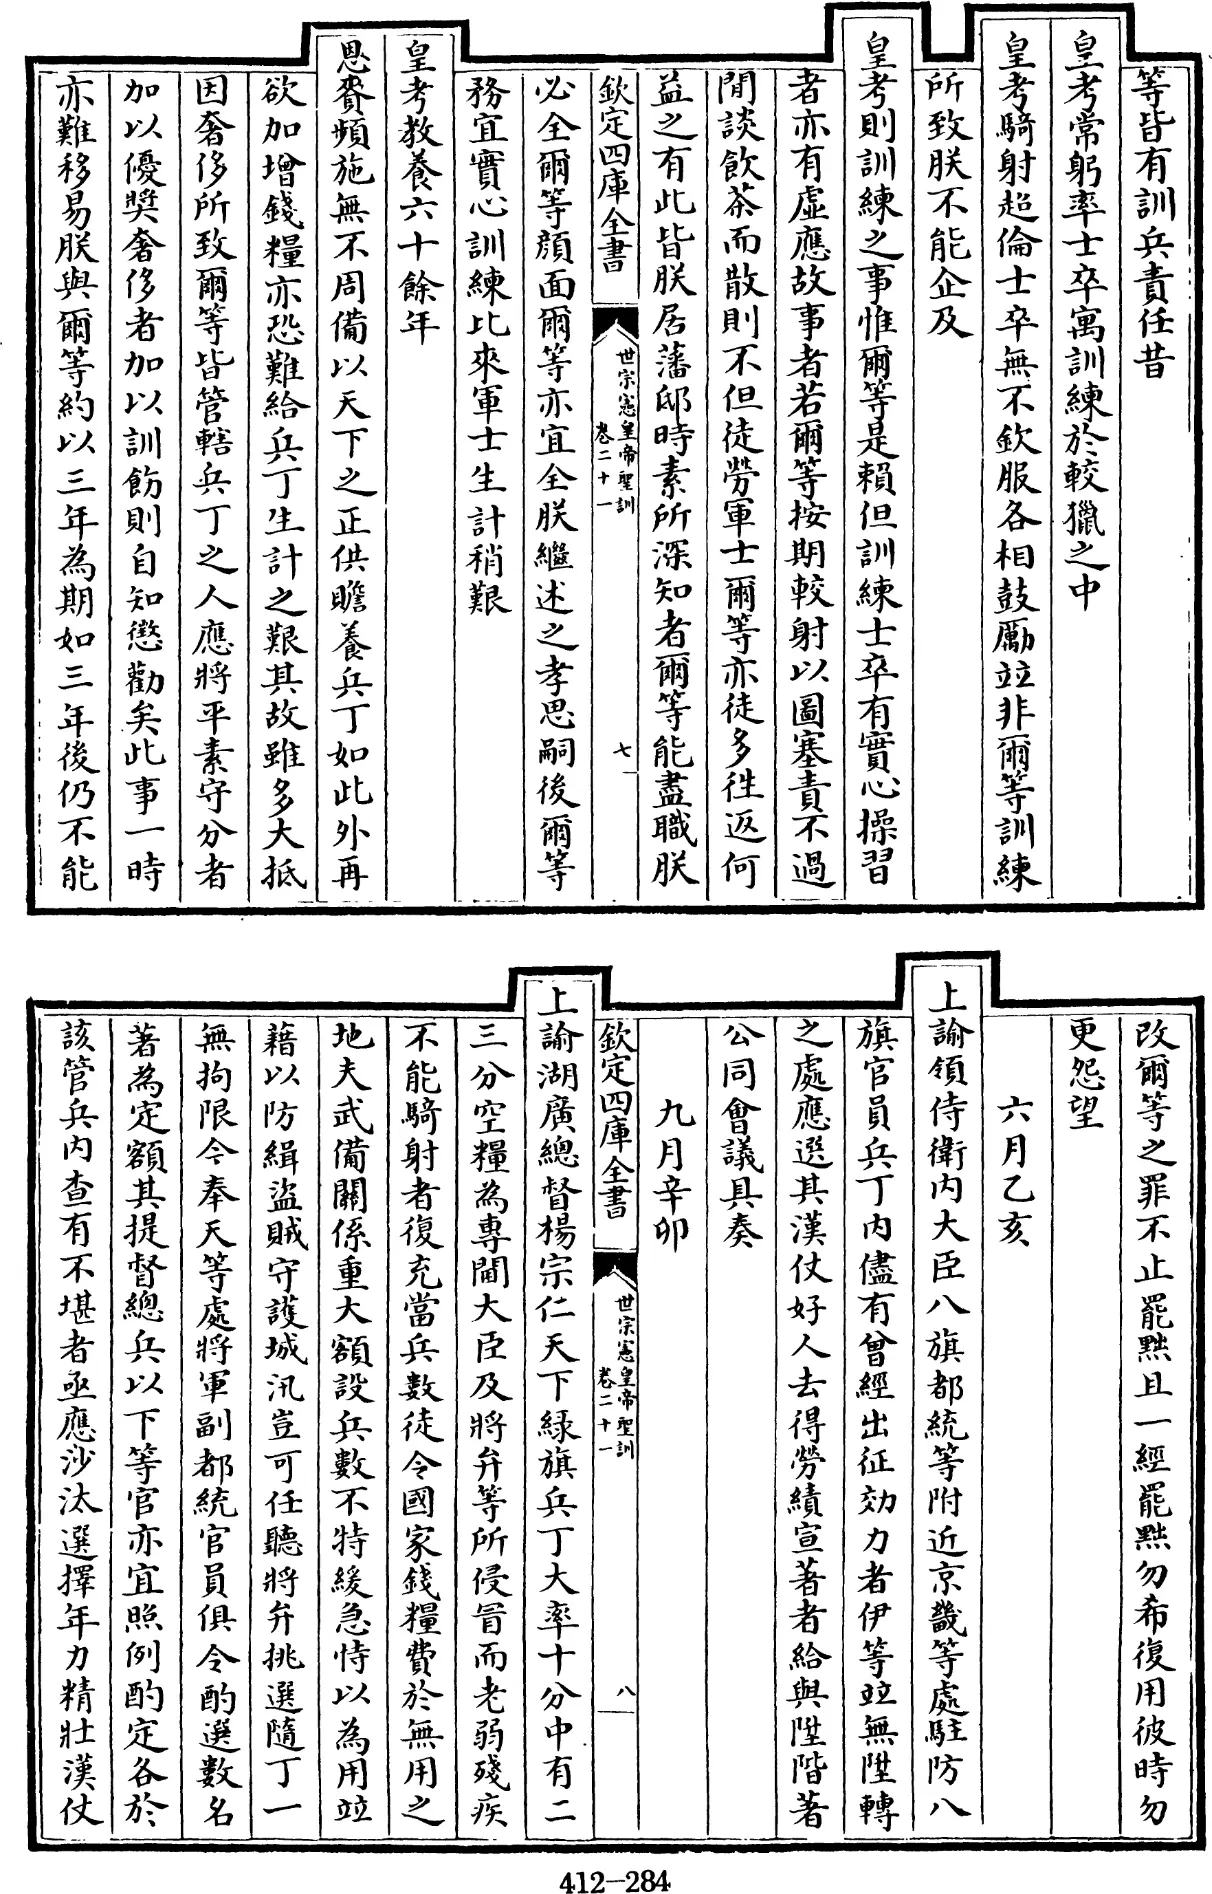 等皆有訓兵責任昔
皇考常躬率士卒寓訓練於較獵之中
皇考騎射超倫士卒無不欽服各相鼓勵並非爾等訓練
所致朕不能企及
皇考則訓練之事惟爾等是賴但訓練士卒有實心操習
者亦有虛應故事者若爾等按期較射以圖塞責不過
閒談飲茶而散則不但徒勞軍士爾等亦徒多徃返何
益之有此皆朕居藩邸時素所深知者爾等能盡職朕
欽定四庫全書
世宗憲皇帝聖訓
卷二十一
七
必全爾等顏面爾等亦宜全朕繼述之孝思嗣後爾等
務宜實心訓練比來軍士生計稍艱
皇考教養六十餘年
恩賚頻施無不周備以天下之正供贍養兵丁如此外再
欲加增錢糧亦恐難給兵丁生計之艱其故雖多大抵
因奢侈所致爾等皆管轄兵丁之人應將平素守分者
加以優奬奢侈者加以訓飭則自知懲勸矣此事一時
亦難移易朕與爾等約以三年為期如三年後仍不能
改爾等之罪不止罷黜且一經罷黜勿希復用彼時勿
更怨望
六月乙亥
上諭領侍衛内大臣八旗都統等附近京畿等處駐防八
旗官員兵丁内儘有曾經出征効力者伊等並無陞轉
之處應選其漢仗好人去得勞績宣著者給與陞階著
公同會議具奏
九月辛卯
欽定四庫全書
世宗憲皇帝聖訓
卷二十一
八
上諭湖廣總督楊宗仁天下緑旗兵丁大率十分中有二
三分空糧為專閫大臣及將弁等所侵冒而老弱殘疾
不能騎射者復充當兵數徒令國家錢糧費於無用之
地夫武備關係重大額設兵數不特緩急恃以為用並
藉以防緝盜賊守護城汛豈可任聽將弁挑選隨丁一
無拘限今奉天等處將軍副都統官員俱令酌選數名
著為定額其提督總兵以下等官亦宜照例酌定各於
該管兵内查有不堪者亟應沙汰選擇年力精壯漢仗
412-284